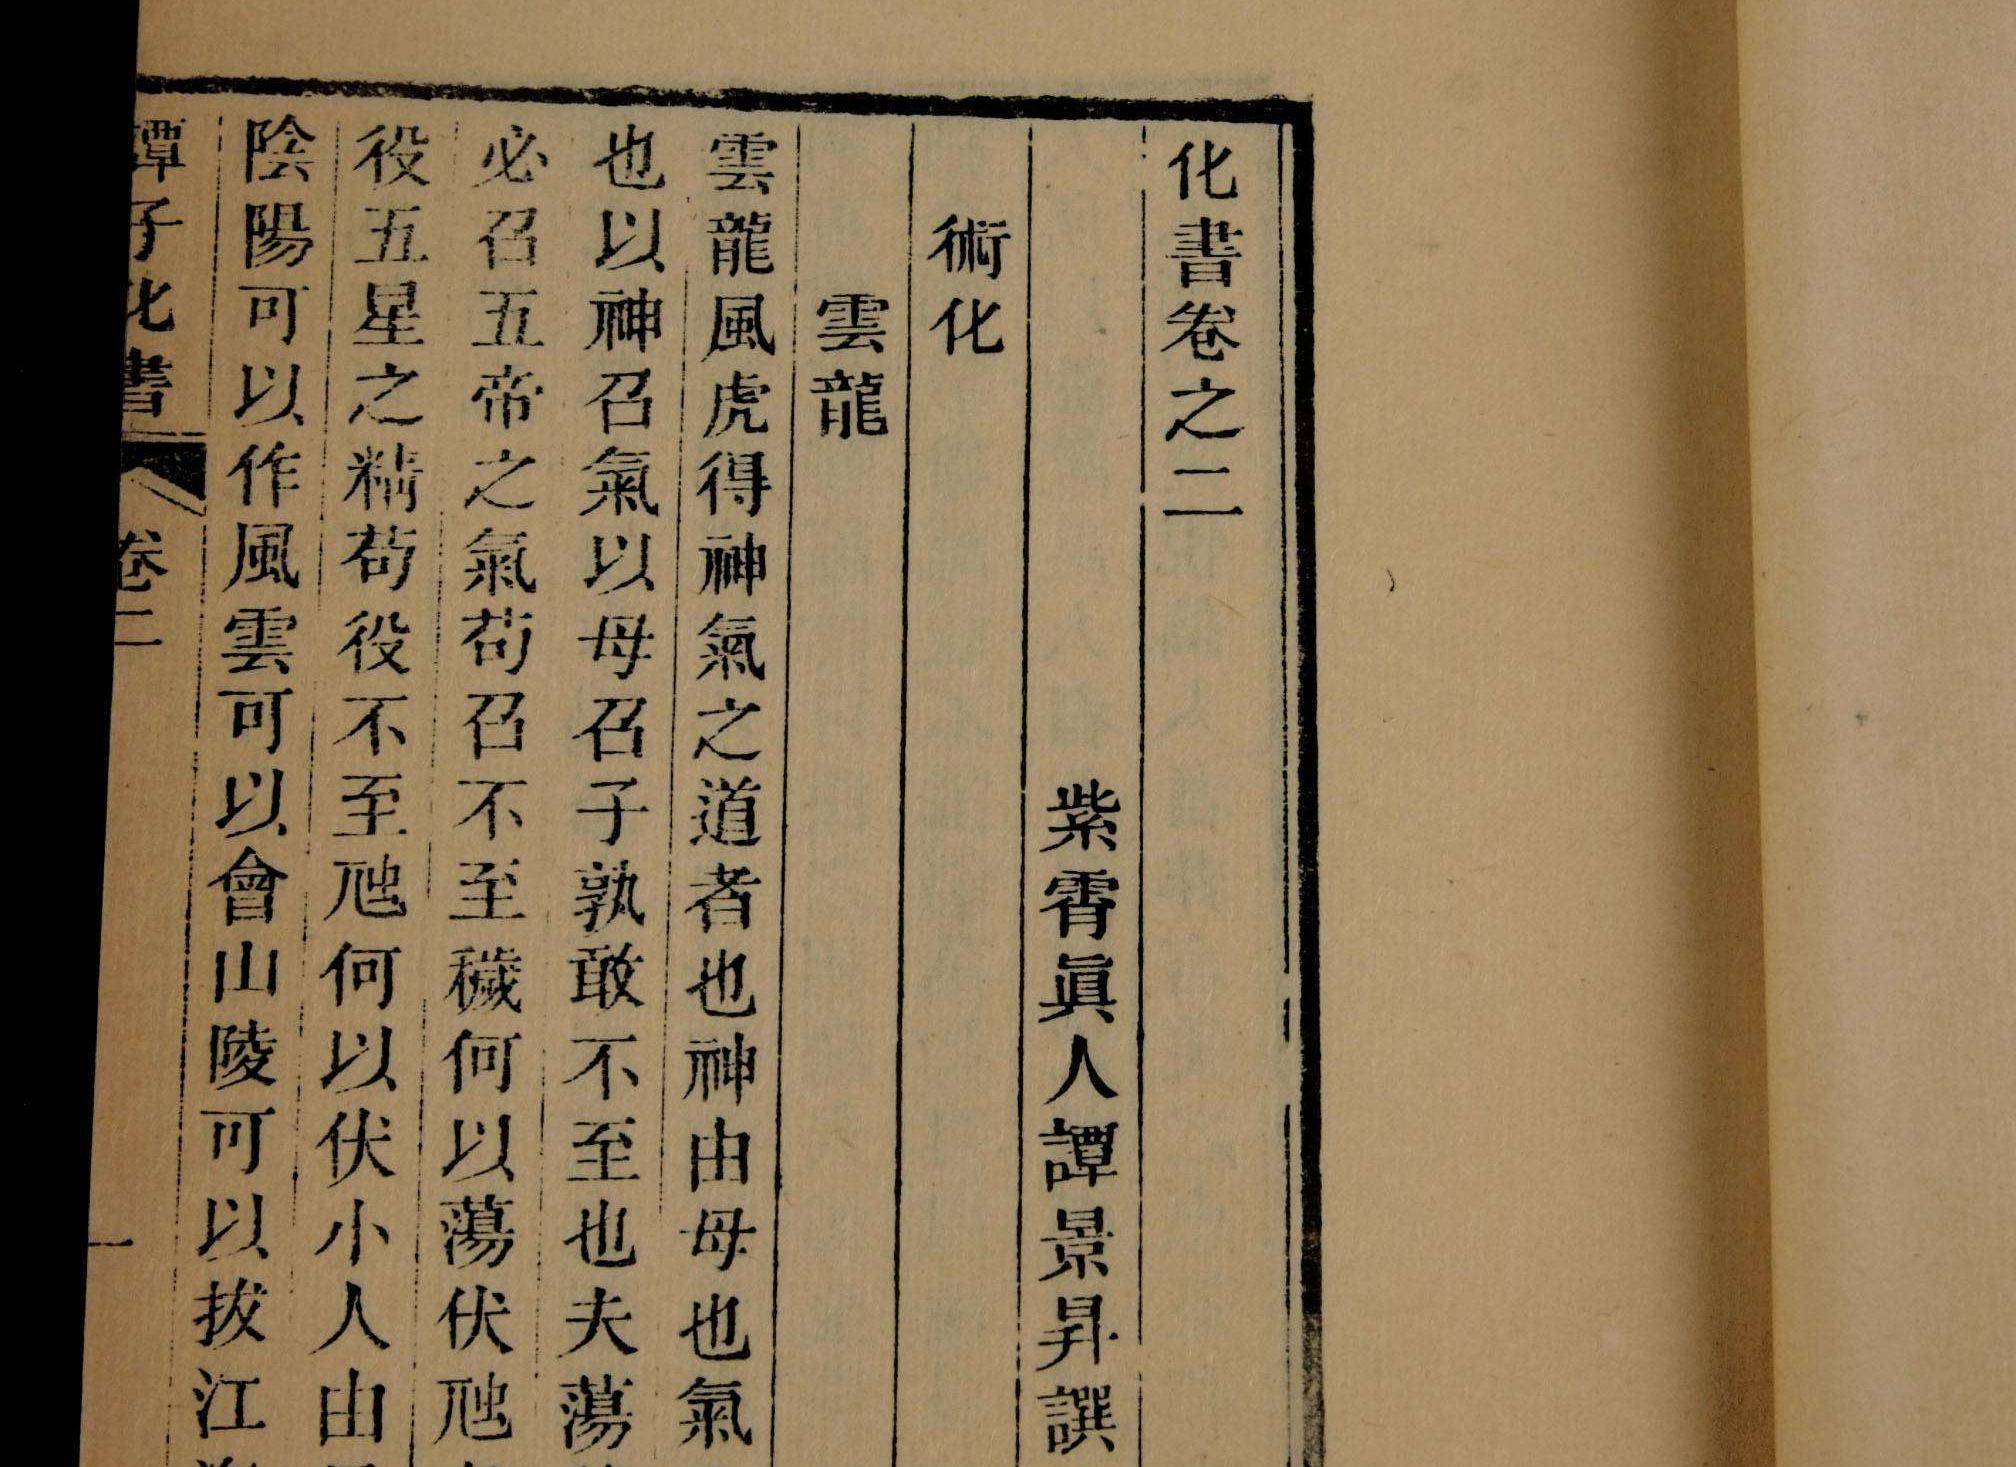 化書卷之二
紫霄眞人譚景昇撰
術化
雲龍
雲龍風虎得神氣之道者也神由母也氣
也以神召氣以母召子孰敢不至也夫蕩
必召五帝之氣苟召不至穢何以蕩伏虺
役五星之精苟役不至虺何以伏小人由
陰陽可以作風雲可以會山陵可以拔江
譚子化書 卷二 一